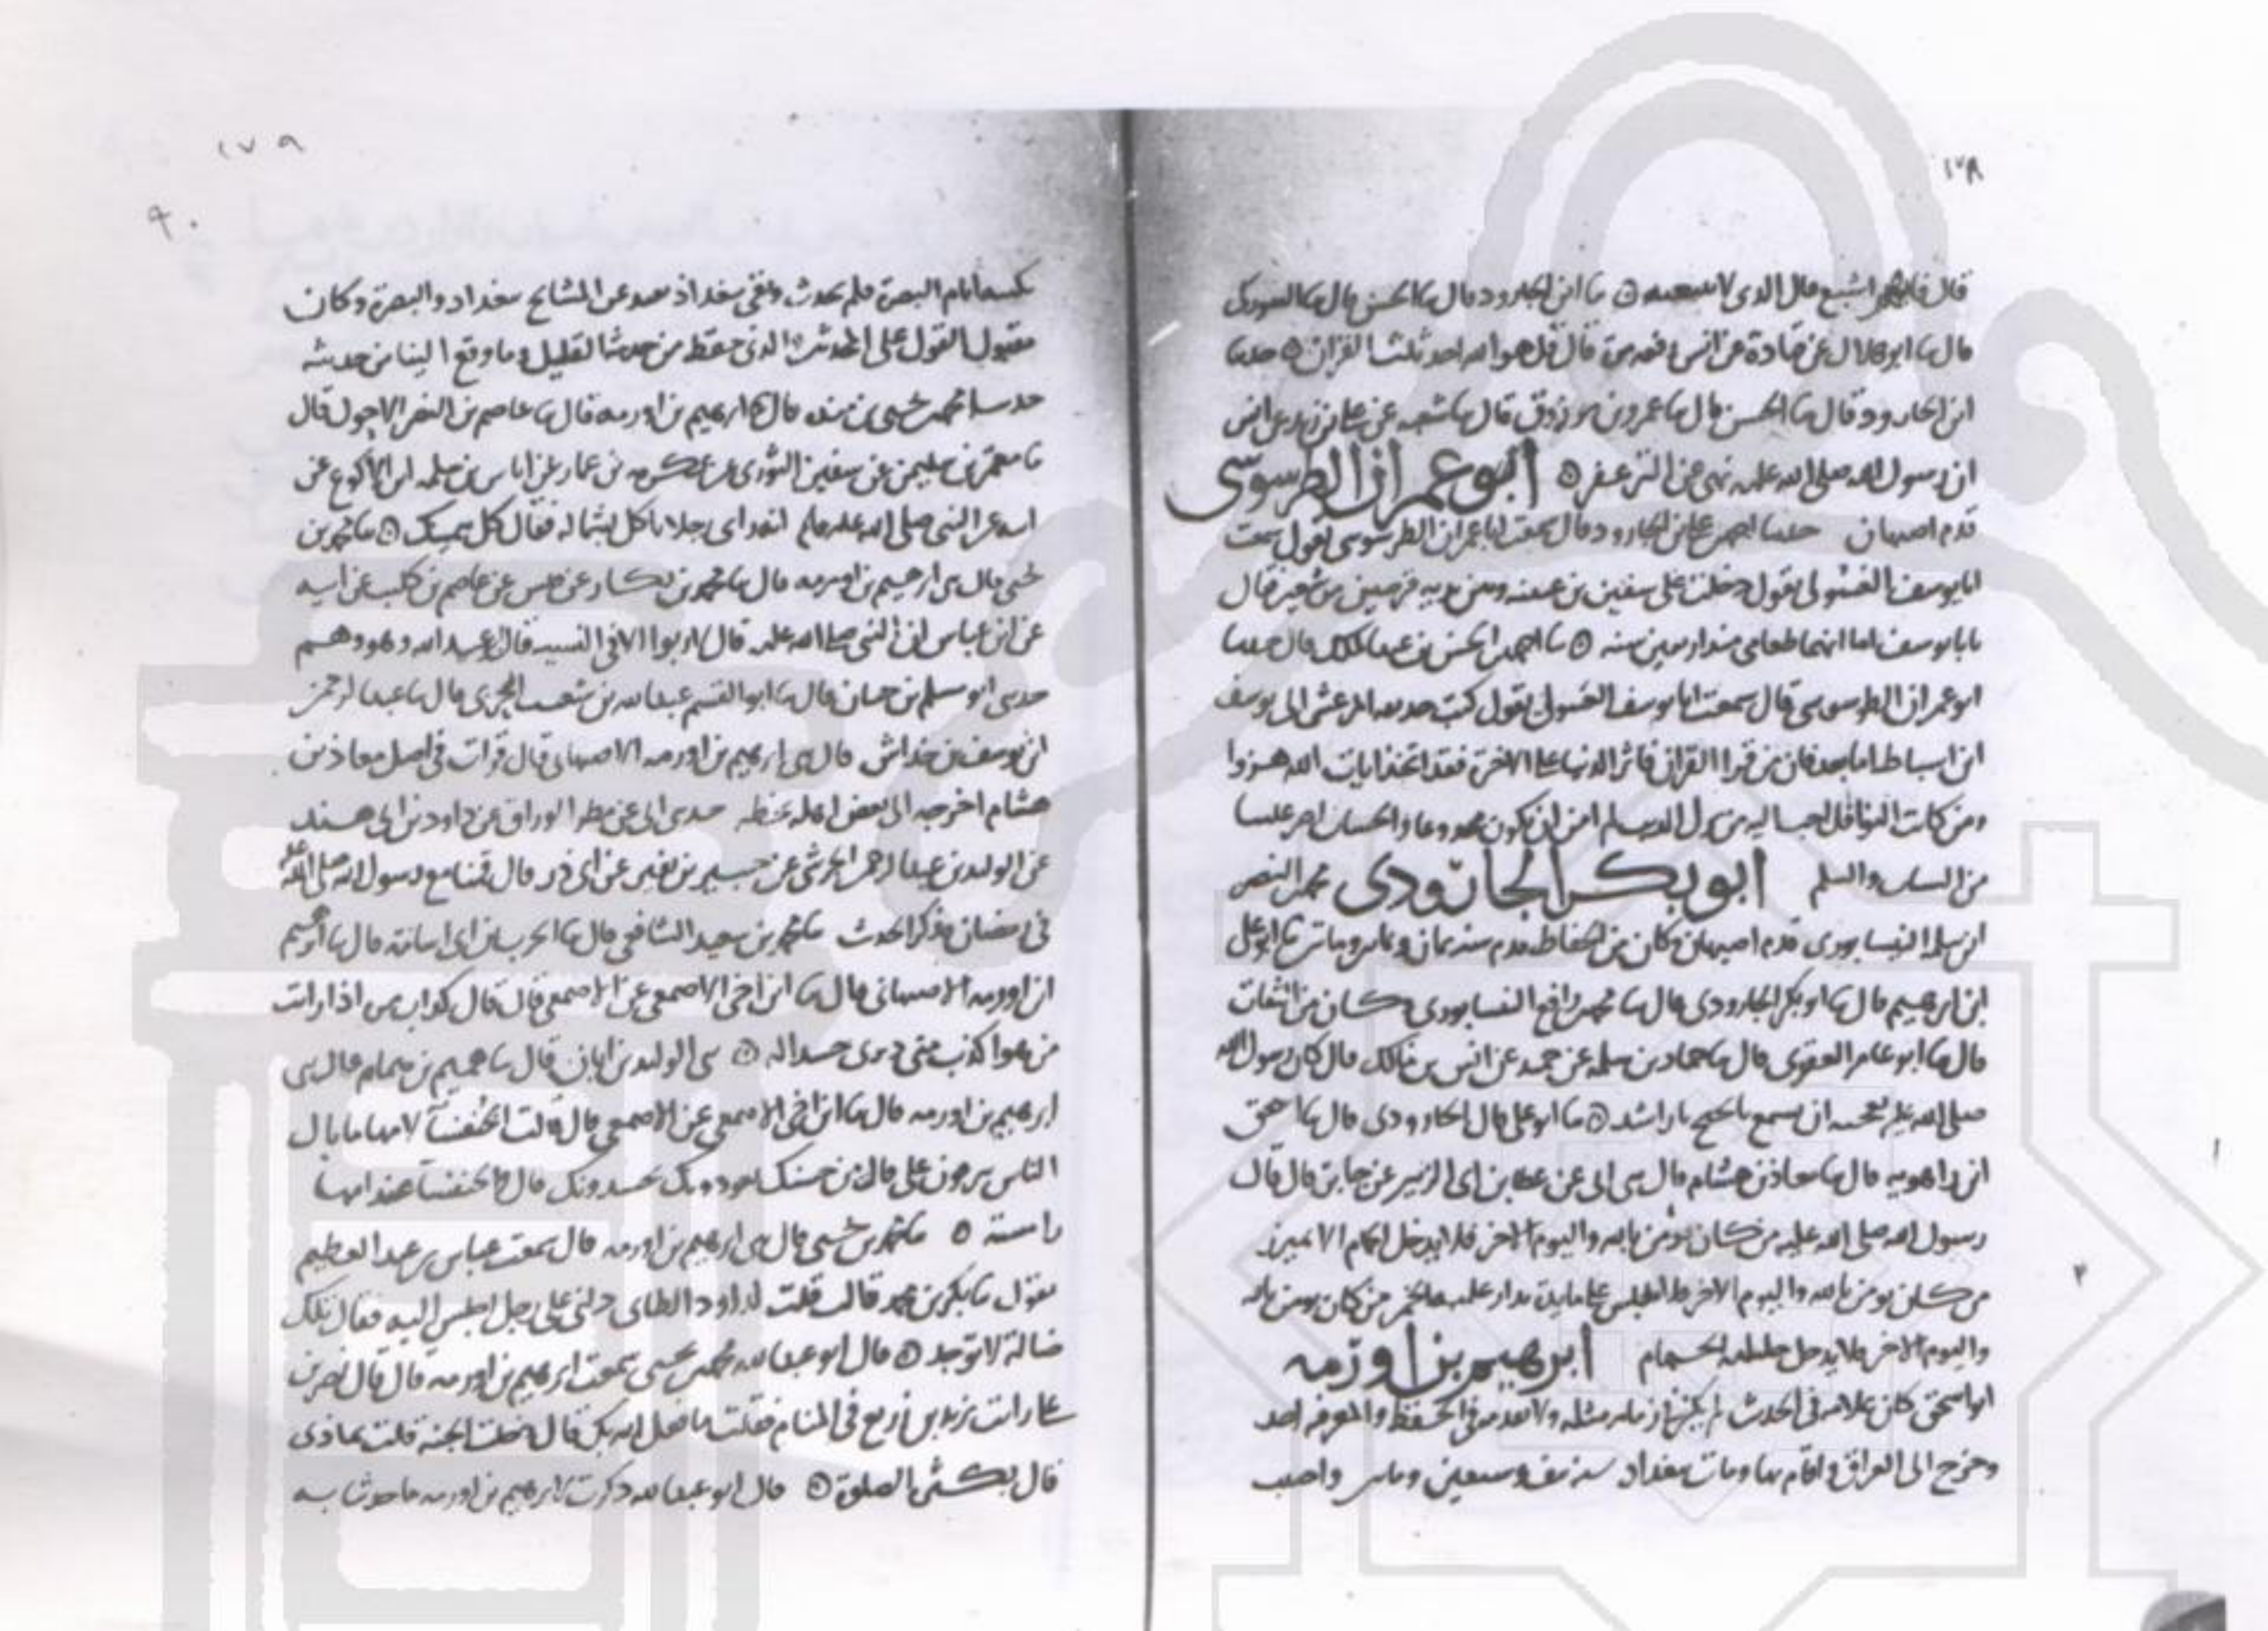 ١٧٨
قال فايهم اشبع قال الذي لا ... ابن الجارود قال ثنا الحسن قال ثنا
قال ثنا ابو هلال عن قتادة عن انس قال قل هو الله احد ثلث القران حدثنا
ابن الجارود قال ثنا الحسن قال ثنا عمرو بن مرزوق قال ثنا شعبه عن علي بن زيد عن انس
ان رسول الله صلى الله عليه نهى عن التزعفر ابو عمران الطرسوسي
قدم اصبهان حدثنا احمد بن علي بن الجارود قال سمعت ابا عمران الطرسوسي يقول سمعت
ابا يوسف الغسولي يقول دخلت على سفين بن عيينه وبين يديه قرصين من شعير فقال
يا با يوسف اما انهما طعامي منذ اربعين سنه ثنا احمد بن الحسن بن عبد الملك قال حدثنا
ابو عمران الطرسوسي قال سمعت ابا يوسف الغسولي يقول كتب حذيفه المرعشي الى يوسف
ابن اسباط اما بعد فان من قرا القران فاثر الدنيا على الاخرة فقد اتخذ ايات الله هزوا
ومن كانت النوافل احب اليه من ترك الدنيا لم امن ان يكون مخدوعا والحسنات اضر علينا
من السيئات والسلم ابو بكر الجارودي محمد بن النضر
ابن سلمه النيسابوري قدم اصبهان وكان من الحفاظ قدم سنه ثمان وثمانين ومايتين ثنا ابو علي
ابن ابرهيم قال ثنا ابو بكر الجارودي قال ثنا محمد بن رافع النيسابوري وكان من الثقات
قال ثنا ابو عامر العقدي قال ثنا حماد بن سلمه عن حميد عن انس بن مالك قال كان رسول الله
صلى الله عليه يعجبه ان يسمع يا نجيح يا راشد ثنا ابو علي قال الجارودي قال ثنا اسحق
ابن راهويه قال ثنا معاذ بن هشام قال حدثني ابي عن عطا عن ابي الزبير عن جابر قال قال
رسول الله صلى الله عليه من كان يؤمن بالله واليوم الاخر فلا يدخل الحمام الا بميزر
من كان يومن بالله واليوم الاخر فلا يجلس على مايدة يدار عليها الخمر من كان يومن بالله
واليوم الاخر فلا يدخل حليلته الحمام ابرهيم بن اورمه
ابو اسحق كان علامه في الحديث لم يكن في زمانه مثله ولا في الحفظ والمعرفه احد
وخرج الى العراق واقام بها ومات ببغداد سنه نيف وسبعين وماتين واصيب
١٧٩
٩٠
بكتبه ايام البصرة فلم يحدث وبقي ببغداد عن المشايخ ببغداد والبصرة وكان
مقبول القول على المحدثين الذي حفظ من حديثه القليل وما وقع الينا من حديثه
حدثنا محمد بن يحيى بن منده قال ثنا ابرهيم بن اورمه قال ثنا عاصم بن النضر الاحول قال
ثنا معتمر بن سليمن عن سفين الثوري عن عكرمه بن عمار عن اياس بن سلمه ابن الاكوع عن
ابيه عن النبي صلى الله عليه وسلم انه راى رجلا ياكل بشماله فقال كل بيمينك ثنا محمد بن
يحيى قال حدثني ابرهيم بن اورمه قال ثنا محمد بن بكار عن عن عاصم بن كليب عن ابيه
عن ابن عباس ان النبي صلى الله عليه قال لا ربوا الا في النسيه فقال ابو عبد الله وهو وهم
حدثني ابو مسلم بن حسان قال ثنا ابو القسم عبد الله بن قال ثنا عبد الرحمن
ابن يوسف بن خراش قال حدثني ابرهيم بن اورمه الاصبهاني قال قرات في اصل معاذ بن
هشام اخرجه الى بعض اهله بخطه حدثني ابي عن مطر الوراق عن داود بن ابي هند
عن الوليد بن عبد الرحمن الجرشي عن جبير بن نفير عن ابي ذر قال قمنا مع رسول الله صلى الله عليه
في رمضان فذكر الحديث ثنا محمد بن سعيد الشافعي قال ثنا ابي اسامة قال ثنا ابرهيم
ابن اورمه الاصبهاني قال ثنا ابن اخي الاصمعي عن الاصمعي قال قال اذا رات
من هو اكذب مني الوليد بن ابان قال ثنا بن همام قال حدثني
ابرهيم بن اورمه قال ثنا ابن اخي الاصمعي عن الاصمعي قال قالت الخنفسا لامها ما بال
الناس يبزقون علي قال من حسنك يعوذونك قال والخنفسا عند امها
رامشنه ثنا محمد بن يحيى قال حدثني ابرهيم بن اورمه قال سمعت عباس بن عبد العظيم
يقول ثنا بكر بن محمد قال قلت لداود الطاي دلني على رجل اجلس اليه فقال تلك
ضالة لا توجد قال ابو عبد الله محمد بن يحيى سمعت ابرهيم بن اورمه قال قال نصر بن
علي رايت يزيد بن زريع في المنام فقلت ما فعل الله بك قال دخلت الجنه قلت بماذى
قال بكثرة الصلوة قال ابو عبد الله ذكرت لابرهيم بن اورمه ما حدثنا به